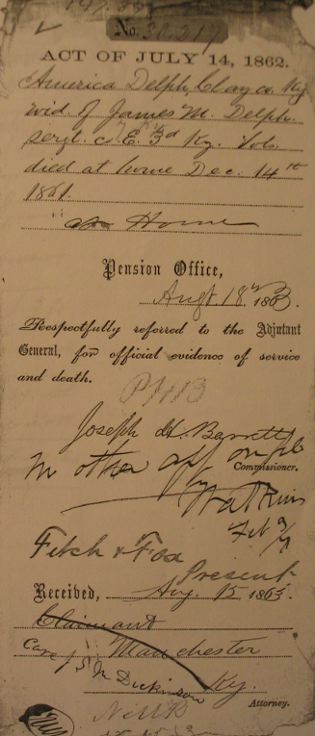 No. 30,217
ACT OF JULY 14, 1862.
America Delph, Clay co. Ky
wid. of James M. Delph.
sergt. c. E. 3d Ky. Vols.
died at home Dec. 14th
1861
" at Home
Pension Office,
Augt. 18th 1863.
Respectfully referred to the Adjutant
General, for official evidence of service
and death.
Joseph H. Barrett
Commissioner.
No other app on file
Watkins
Feb
Fitch & Fox
Present
Received, Aug. 15 1863.
Claimant
Manchester
Care J. W. Dickinson Ky.
Attorney.